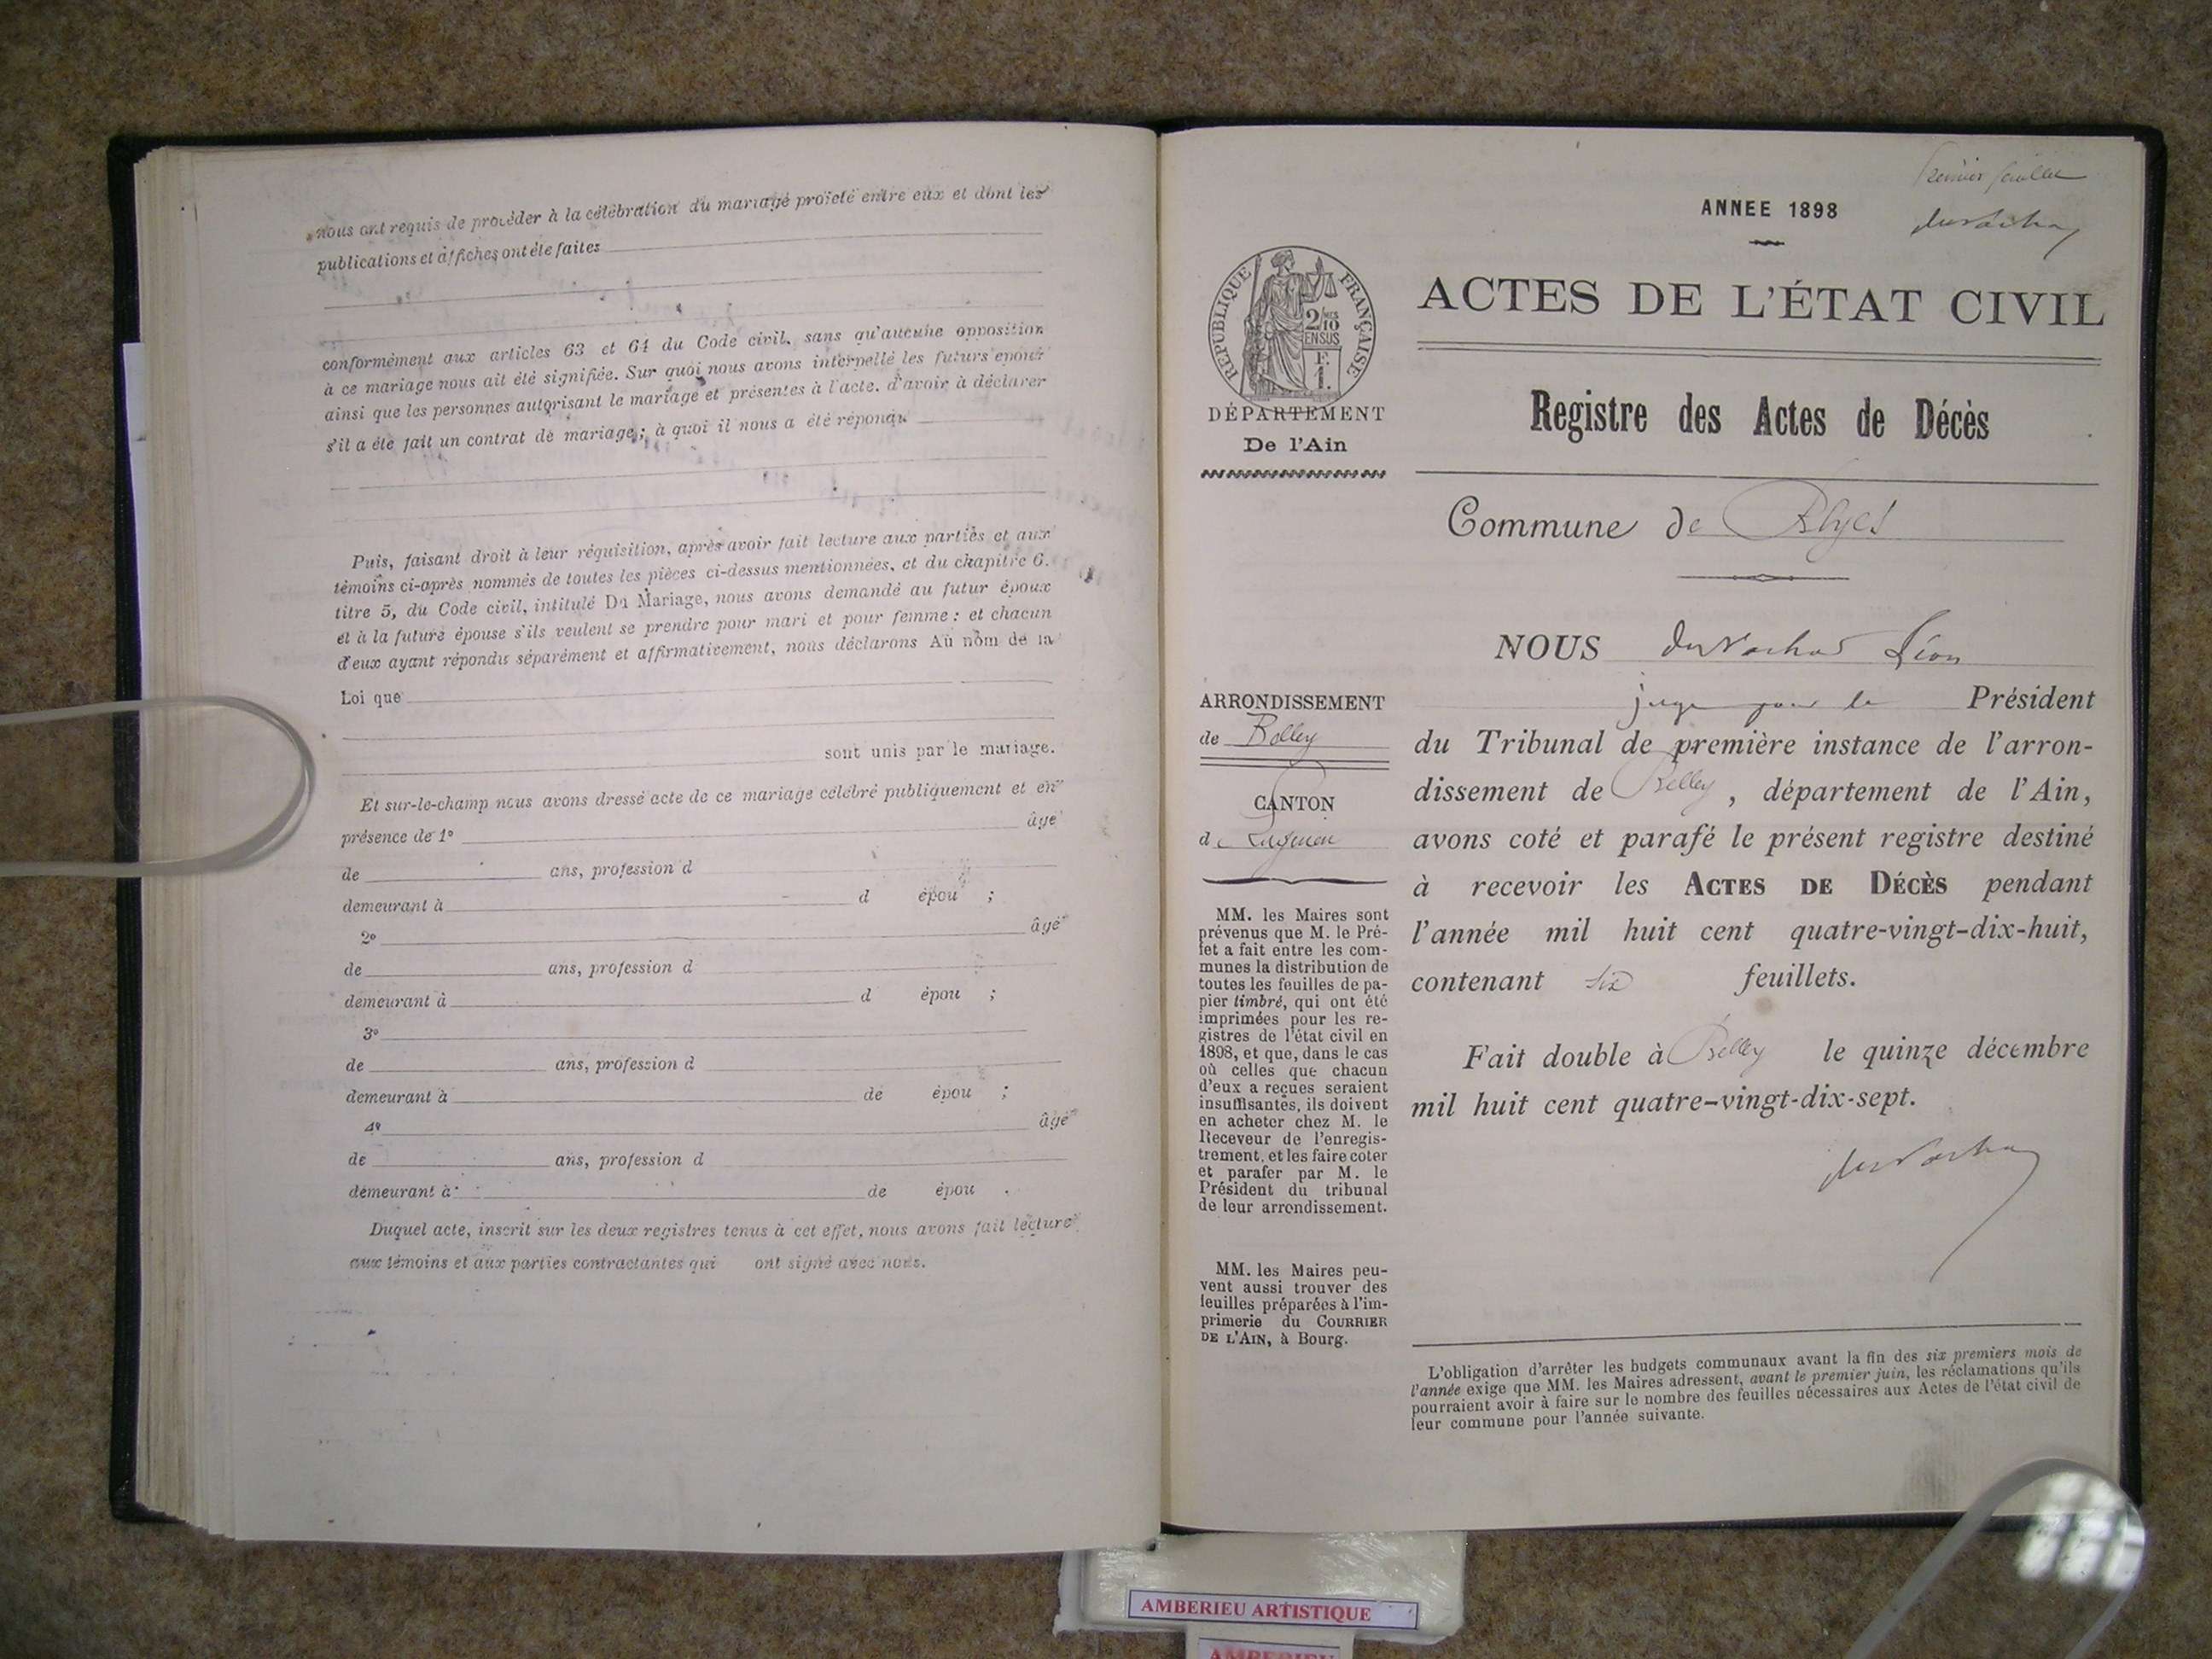 nous ont requis de procéder à la célébration du mariage projeté entre eux et dont les
publications et affiches ont été faites
conformément aux articles 63 et 64 du Code civil, sans qu'aucune opposition
à ce mariage nous ait été signifiée. Sur quoi nous avons interpellé les futurs époux
ainsi que les personnes autorisant le mariage et présentes à l'acte, d'avoir à déclarer
s'il a été fait un contrat de mariage; à quoi il nous a été répondu
Puis, faisant droit à leur réquisition, après avoir fait lecture aux parties et aux
témoins ci-après nommés de toutes les pièces ci-dessus mentionnées, et du chapitre 6.
titre 5, du Code civil, intitulé Du Mariage, nous avons demandé au futur époux
et à la future épouse s'ils veulent se prendre pour mari et pour femme : et chacun
d'eux ayant répondu séparément et affirmativement, nous déclarons Au nom de la
Loi que
sont unis par le mariage.
Et sur-le-champ nous avons dressé acte de ce mariage célébré publiquement et en
présence de 1° âgé
de ans, profession d
demeurant à d épou ;
2° âgé
de ans, profession d
demeurant à d épou ;
3°
de ans, profession d
demeurant à de épou ;
4° âgé
de ans, profession d
demeurant à de épou .
Duquel acte, inscrit sur les deux registres tenus à cet effet, nous avons fait lecture
aux témoins et aux parties contractantes qui ont signé avec nous.
Premier feuillet
ANNEE 1898
RÉPUBLIQUE FRANÇAISE
2/10 MES
EN SUS
F.
1.
ACTES DE L'ÉTAT CIVIL
Registre des Actes de Décès
DÉPARTEMENT
De l'Ain
Commune de Blyes
NOUS Léon
juge pour le Président
du Tribunal de première instance de l'arron-
dissement de Belley, département de l'Ain,
avons coté et parafé le présent registre destiné
à recevoir les ACTES DE DÉCÈS pendant
l'année mil huit cent quatre-vingt-dix-huit,
contenant six feuillets.
Fait double à Belley le quinze décembre
mil huit cent quatre-vingt-dix-sept.
ARRONDISSEMENT
de Belley
CANTON
de Lagnieu
MM. les Maires sont
prévenus que M. le Pré-
fet a fait entre les com-
munes la distribution de
toutes les feuilles de pa-
pier timbré, qui ont été
imprimées pour les re-
gistres de l'état civil en
1898, et que, dans le cas
où celles que chacun
d'eux a reçues seraient
insuffisantes, ils doivent
en acheter chez M. le
Receveur de l'enregis-
trement, et les faire coter
et parafer par M. le
Président du tribunal
de leur arrondissement.
MM. les Maires peu-
vent aussi trouver des
feuilles préparées à l'im-
primerie du COURRIER
DE L'AIN, à Bourg.
L'obligation d'arrêter les budgets communaux avant la fin des six premiers mois de
l'année exige que MM. les Maires adressent, avant le premier juin, les réclamations qu'ils
pourraient avoir à faire sur le nombre des feuilles nécessaires aux Actes de l'état civil de
leur commune pour l'année suivante.
AMBERIEU ARTISTIQUE
AMBERIEU